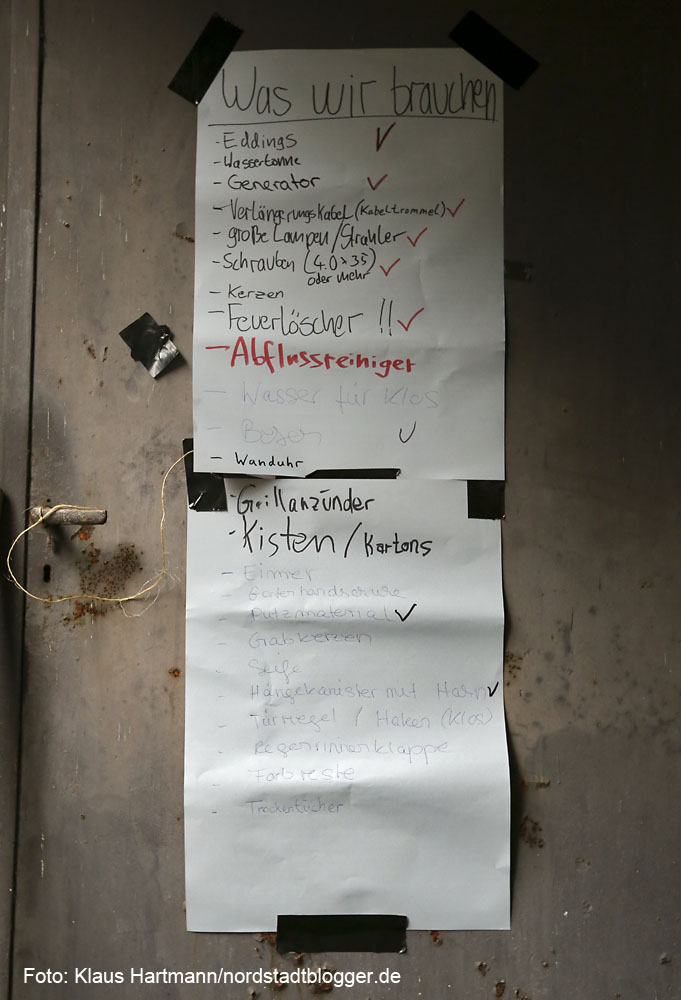 Was wir brauchen
- Eddings ✓
- Wassertonne
- Generator ✓
- Verlängerungskabel (Kabeltrommel) ✓
- große Lampen/Strahler ✓
- Schrauben (4.0 x 35) ✓
oder mehr
- Kerzen
- Feuerlöscher !! ✓
- Abflussreiniger
- Wasser für Klos
- Besen ✓
- Wanduhr
- Grillanzünder
- Kisten/Kartons
- Eimer
- Gartenhandschuhe
- Putzmaterial ✓
- Grabkerzen
- Seife
- Hängekanister mit Hahn ✓
- Türriegel / Haken (Klos)
- Regenrinnenklappe
- Farbreste
- Trockentücher
Foto: Klaus Hartmann/nordstadtblogger.de